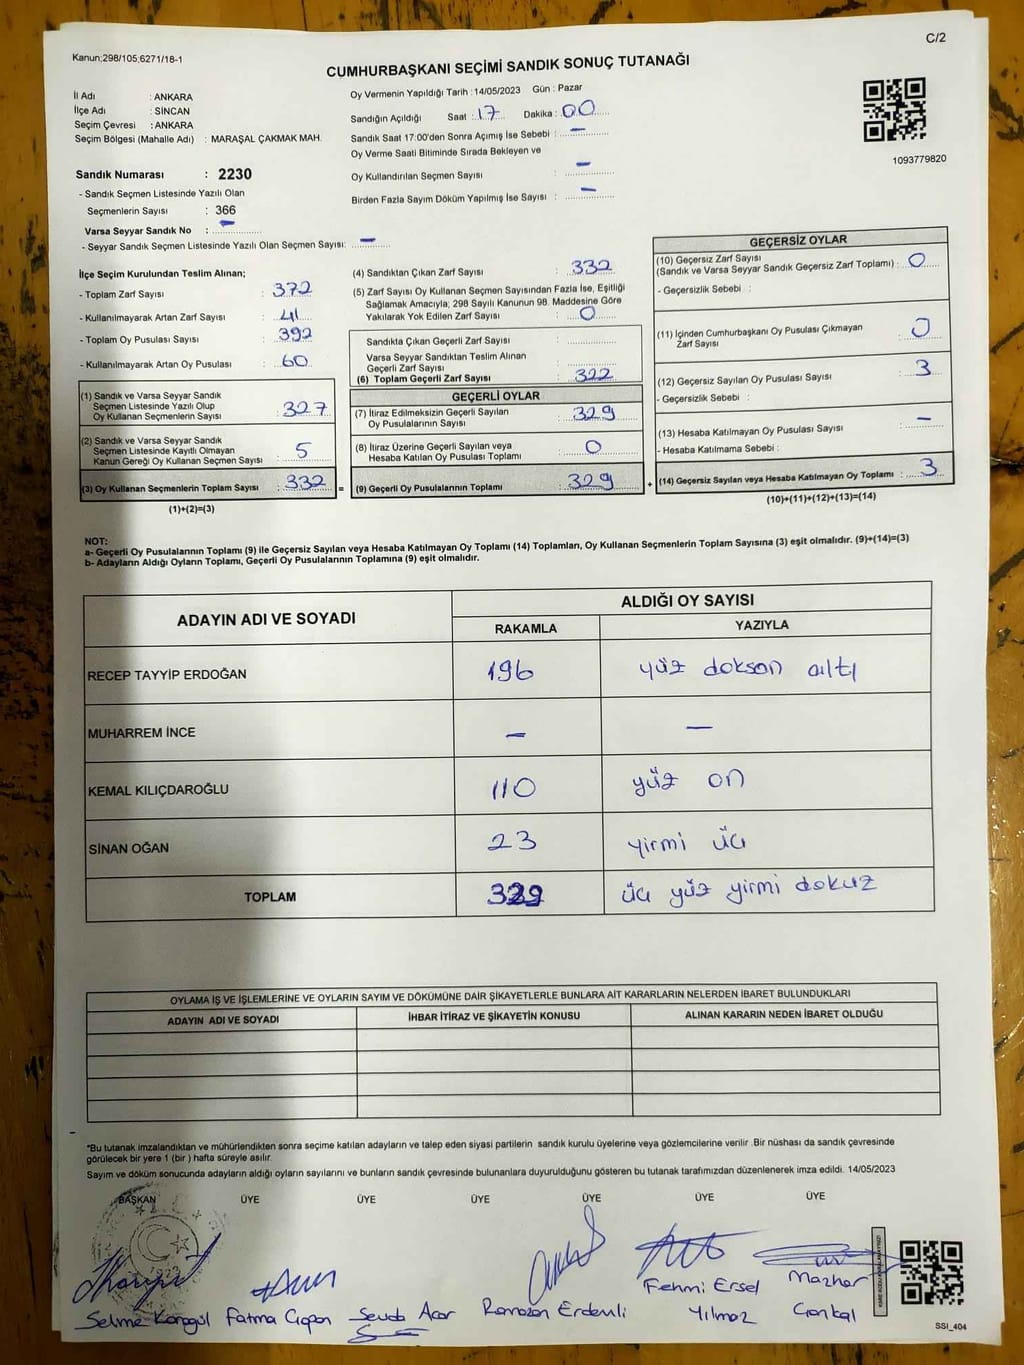 C/2
Kanun;298/105,6271/18-1
CUMHURBAŞKANI SEÇİMİ SANDIK SONUÇ TUTANAĞI
İl Adı : ANKARA
İlçe Adı : SİNCAN
Seçim Çevresi : ANKARA
Seçim Bölgesi (Mahalle Adı) : MARAŞAL ÇAKMAK MAH.
Oy Vermenin Yapıldığı Tarih : 14/05/2023 Gün : Pazar
Sandığın Açıldığı Saat : 17 Dakika : 00
Sandık Saat 17:00'den Sonra Açımış İse Sebebi : —
Oy Verme Saati Bitiminde Sırada Bekleyen ve
Oy Kullandırılan Seçmen Sayısı : —
Birden Fazla Sayım Döküm Yapılmış İse Sayısı : —
1093779820
Sandık Numarası : 2230
- Sandık Seçmen Listesinde Yazılı Olan
Seçmenlerin Sayısı : 366
Varsa Seyyar Sandık No : —
- Seyyar Sandık Seçmen Listesinde Yazılı Olan Seçmen Sayısı: —
İlçe Seçim Kurulundan Teslim Alınan;
- Toplam Zarf Sayısı : 372
- Kullanılmayarak Artan Zarf Sayısı : 41
- Toplam Oy Pusulası Sayısı : 392
- Kullanılmayarak Artan Oy Pusulası : 60
(1) Sandık ve Varsa Seyyar Sandık
Seçmen Listesinde Yazılı Olup
Oy Kullanan Seçmenlerin Sayısı : 327
(2) Sandık ve Varsa Seyyar Sandık
Seçmen Listesinde Kayıtlı Olmayan
Kanun Gereği Oy Kullanan Seçmen Sayısı : 5
(3) Oy Kullanan Seçmenlerin Toplam Sayısı : 332 =
(1)+(2)=(3)
(4) Sandıktan Çıkan Zarf Sayısı : 332
(5) Zarf Sayısı Oy Kullanan Seçmen Sayısından Fazla İse, Eşitliği
Sağlamak Amacıyla; 298 Sayılı Kanunun 98. Maddesine Göre
Yakılarak Yok Edilen Zarf Sayısı : 0
Sandıkta Çıkan Geçerli Zarf Sayısı :
Varsa Seyyar Sandıktan Teslim Alınan
Geçerli Zarf Sayısı :
(6) Toplam Geçerli Zarf Sayısı : 322
GEÇERLİ OYLAR
(7) İtiraz Edilmeksizin Geçerli Sayılan
Oy Pusulalarının Sayısı : 329
(8) İtiraz Üzerine Geçerli Sayılan veya
Hesaba Katılan Oy Pusulası Toplamı : 0
(9) Geçerli Oy Pusulalarının Toplamı : 329 +
GEÇERSİZ OYLAR
(10) Geçersiz Zarf Sayısı
(Sandık ve Varsa Seyyar Sandık Geçersiz Zarf Toplamı) : 0
- Geçersizlik Sebebi :
(11) İçinden Cumhurbaşkanı Oy Pusulası Çıkmayan
Zarf Sayısı : 0
(12) Geçersiz Sayılan Oy Pusulası Sayısı : 3
- Geçersizlik Sebebi :
(13) Hesaba Katılmayan Oy Pusulası Sayısı : —
- Hesaba Katılmama Sebebi :
(14) Geçersiz Sayılan veya Hesaba Katılmayan Oy Toplamı : 3
(10)+(11)+(12)+(13)=(14)
NOT:
a- Geçerli Oy Pusulalarının Toplamı (9) ile Geçersiz Sayılan veya Hesaba Katılmayan Oy Toplamı (14) Toplamları, Oy Kullanan Seçmenlerin Toplam Sayısına (3) eşit olmalıdır. (9)+(14)=(3)
b- Adayların Aldığı Oyların Toplamı, Geçerli Oy Pusulalarının Toplamına (9) eşit olmalıdır.
ADAYIN ADI VE SOYADI ALDIĞI OY SAYISI
RAKAMLA YAZIYLA
RECEP TAYYİP ERDOĞAN 196 yüz doksan altı
MUHARREM İNCE — —
KEMAL KILIÇDAROĞLU 110 yüz on
SİNAN OĞAN 23 yirmi üç
TOPLAM 329 üç yüz yirmi dokuz
OYLAMA İŞ VE İŞLEMLERİNE VE OYLARIN SAYIM VE DÖKÜMÜNE DAİR ŞİKAYETLERLE BUNLARA AİT KARARLARIN NELERDEN İBARET BULUNDUKLARI
ADAYIN ADI VE SOYADI İHBAR İTİRAZ VE ŞİKAYETİN KONUSU ALINAN KARARIN NEDEN İBARET OLDUĞU
*Bu tutanak imzalandıktan ve mühürlendikten sonra seçime katılan adayların ve talep eden siyasi partilerin sandık kurulu üyelerine veya gözlemcilerine verilir .Bir nüshası da sandık çevresinde
görülecek bir yere 1 (bir ) hafta süreyle asılır.
Sayım ve döküm sonucunda adayların aldığı oyların sayılarını ve bunların sandık çevresinde bulunanlara duyurulduğunu gösteren bu tutanak tarafımızdan düzenlenerek imza edildi. 14/05/2023
BAŞKAN ÜYE ÜYE ÜYE ÜYE ÜYE ÜYE
Selime Fatma Sevda Acar Ramazan Erdemli Fehmi Ersel Yılmaz Mazhar
SSİ_404